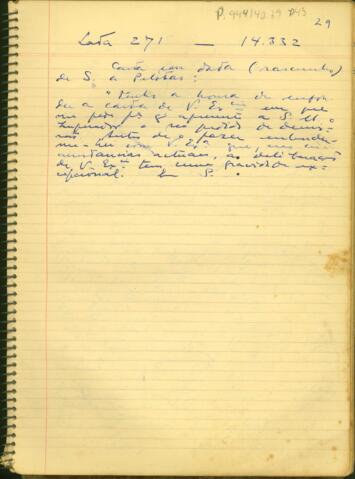 29
Lata 271 — 14.332
Carta sem data (rascunho)
de S. a Pelotas:
"Tenho a honra de respon-
der a carta de V. Exª em que
me pede pª q apresente a S. M. o
Imperador o seu pedido de demis-
são. Antes de o fazer entender-
me-hei com V. Exª que, nas cir-
cunstancias actuaes, as deliberações
de V. Exª tem uma gravidade ex-
cepcional. Em S.